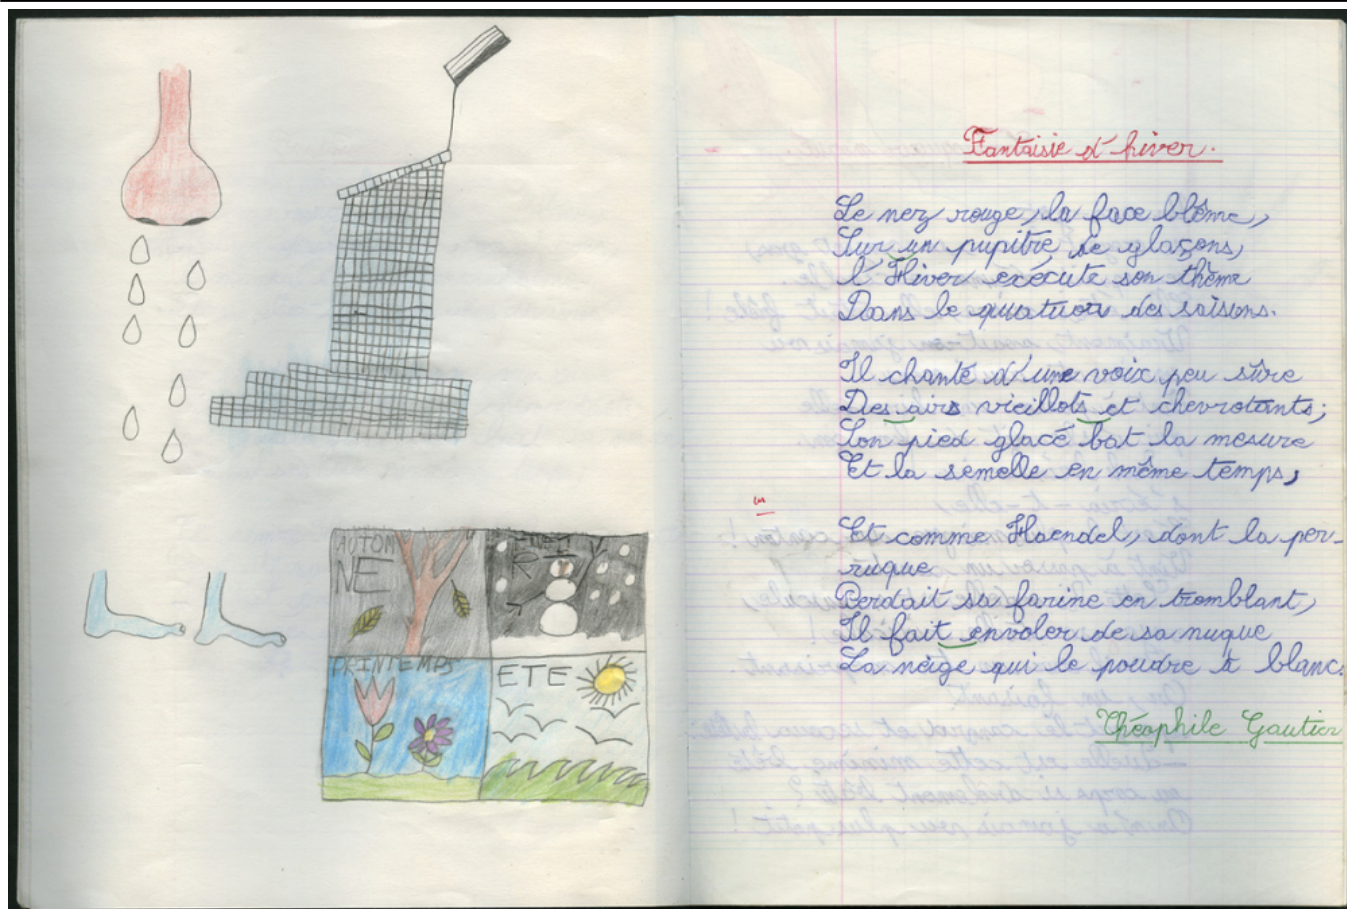 AUTOM
NE
PRINTEMPS
ETE
Fantaisie d'hiver.
Le nez rouge, la face blême,
Sur un pupitre de glaçons,
l'Hiver exécute son thème
Dans le quatuor des saisons.
Il chante d'une voix peu sûre
Des airs vieillots et chevrotants;
Son pied glacé bat la mesure
Et la semelle en même temps,
Et comme Haendel, dont la per-
ruque
Perdait sa farine en tremblant,
Il fait envoler de sa nuque
La neige qui le poudre à blanc.
Théophile Gautier